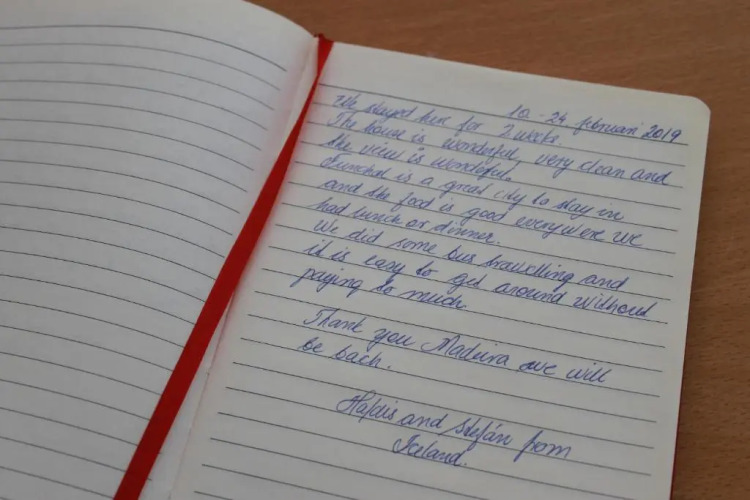 10 - 24 februari 2019
We stayed here for 2 weeks.
The house is wonderful, very clean and
the view is wonderful.
Funchal is a great city to stay in
and the food is good everywere we
had lunch or dinner.
We did some bus travelling and
it is easy to get around without
paying to much.
Thank you Madeira we will
be back.
Hafdis and Stefán from
Iceland.